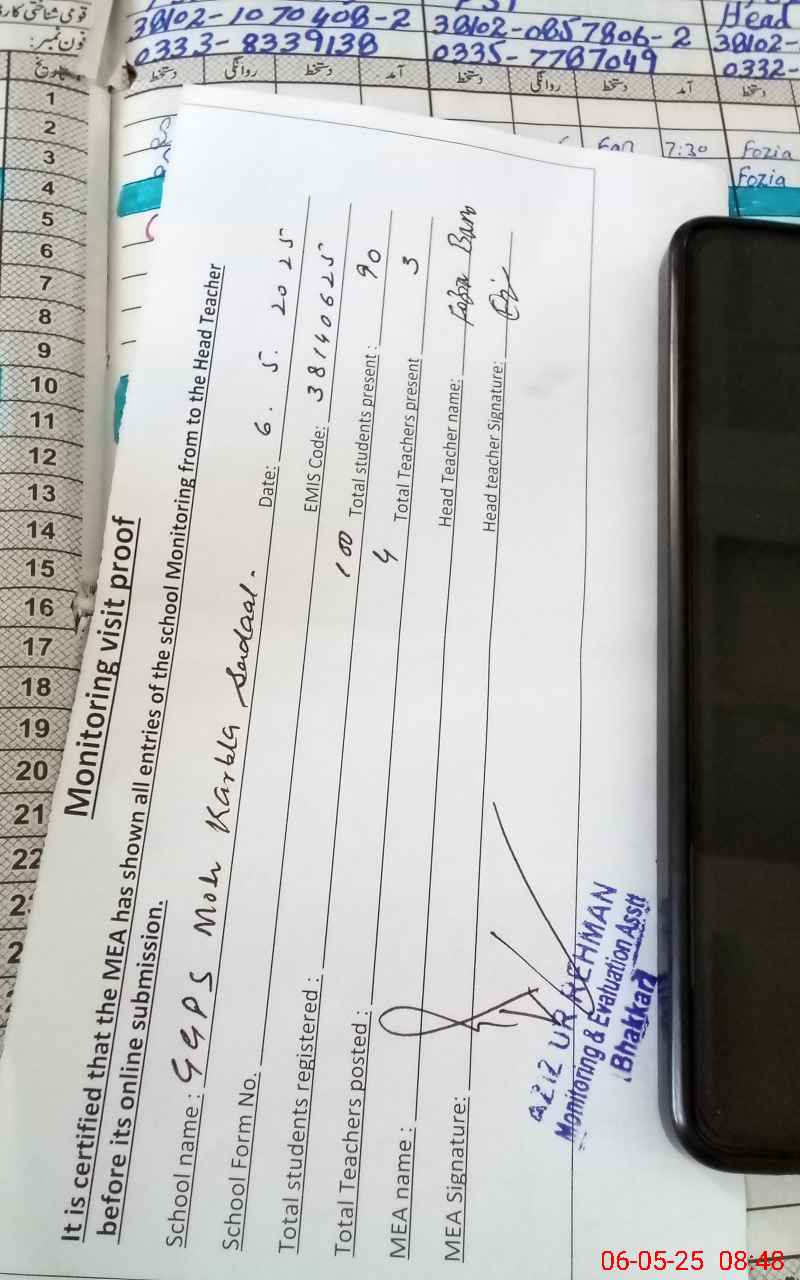 قومی شناختی کارڈ
38102-1070408-2
38102-0857806-2
Head
38102-
فون نمبر:
0333-8339138
0335-7787049
0332-
تاریخ
دستخط
روانگی
دستخط
آمد
دستخط
روانگی
دستخط
آمد
دستخط
1
2
3
4
5
6
7
8
9
10
11
12
13
14
15
16
17
18
19
20
21
22
7:30
Fozia
Fozia
Monitoring visit proof
It is certified that the MEA has shown all entries of the school Monitoring from to the Head Teacher
before its online submission.
School name : GGPS Moh Karbla
School Form No. Date: 6. 5. 2025
Total students registered : 100 EMIS Code: 38140625
Total Teachers posted : 4 Total students present : 90
MEA name : Total Teachers present 3
MEA Signature: Head Teacher name:
Head teacher Signature:
AZIZ UR REHMAN
Monitoring & Evaluation Asstt
Bhakkar
06-05-25 08:48